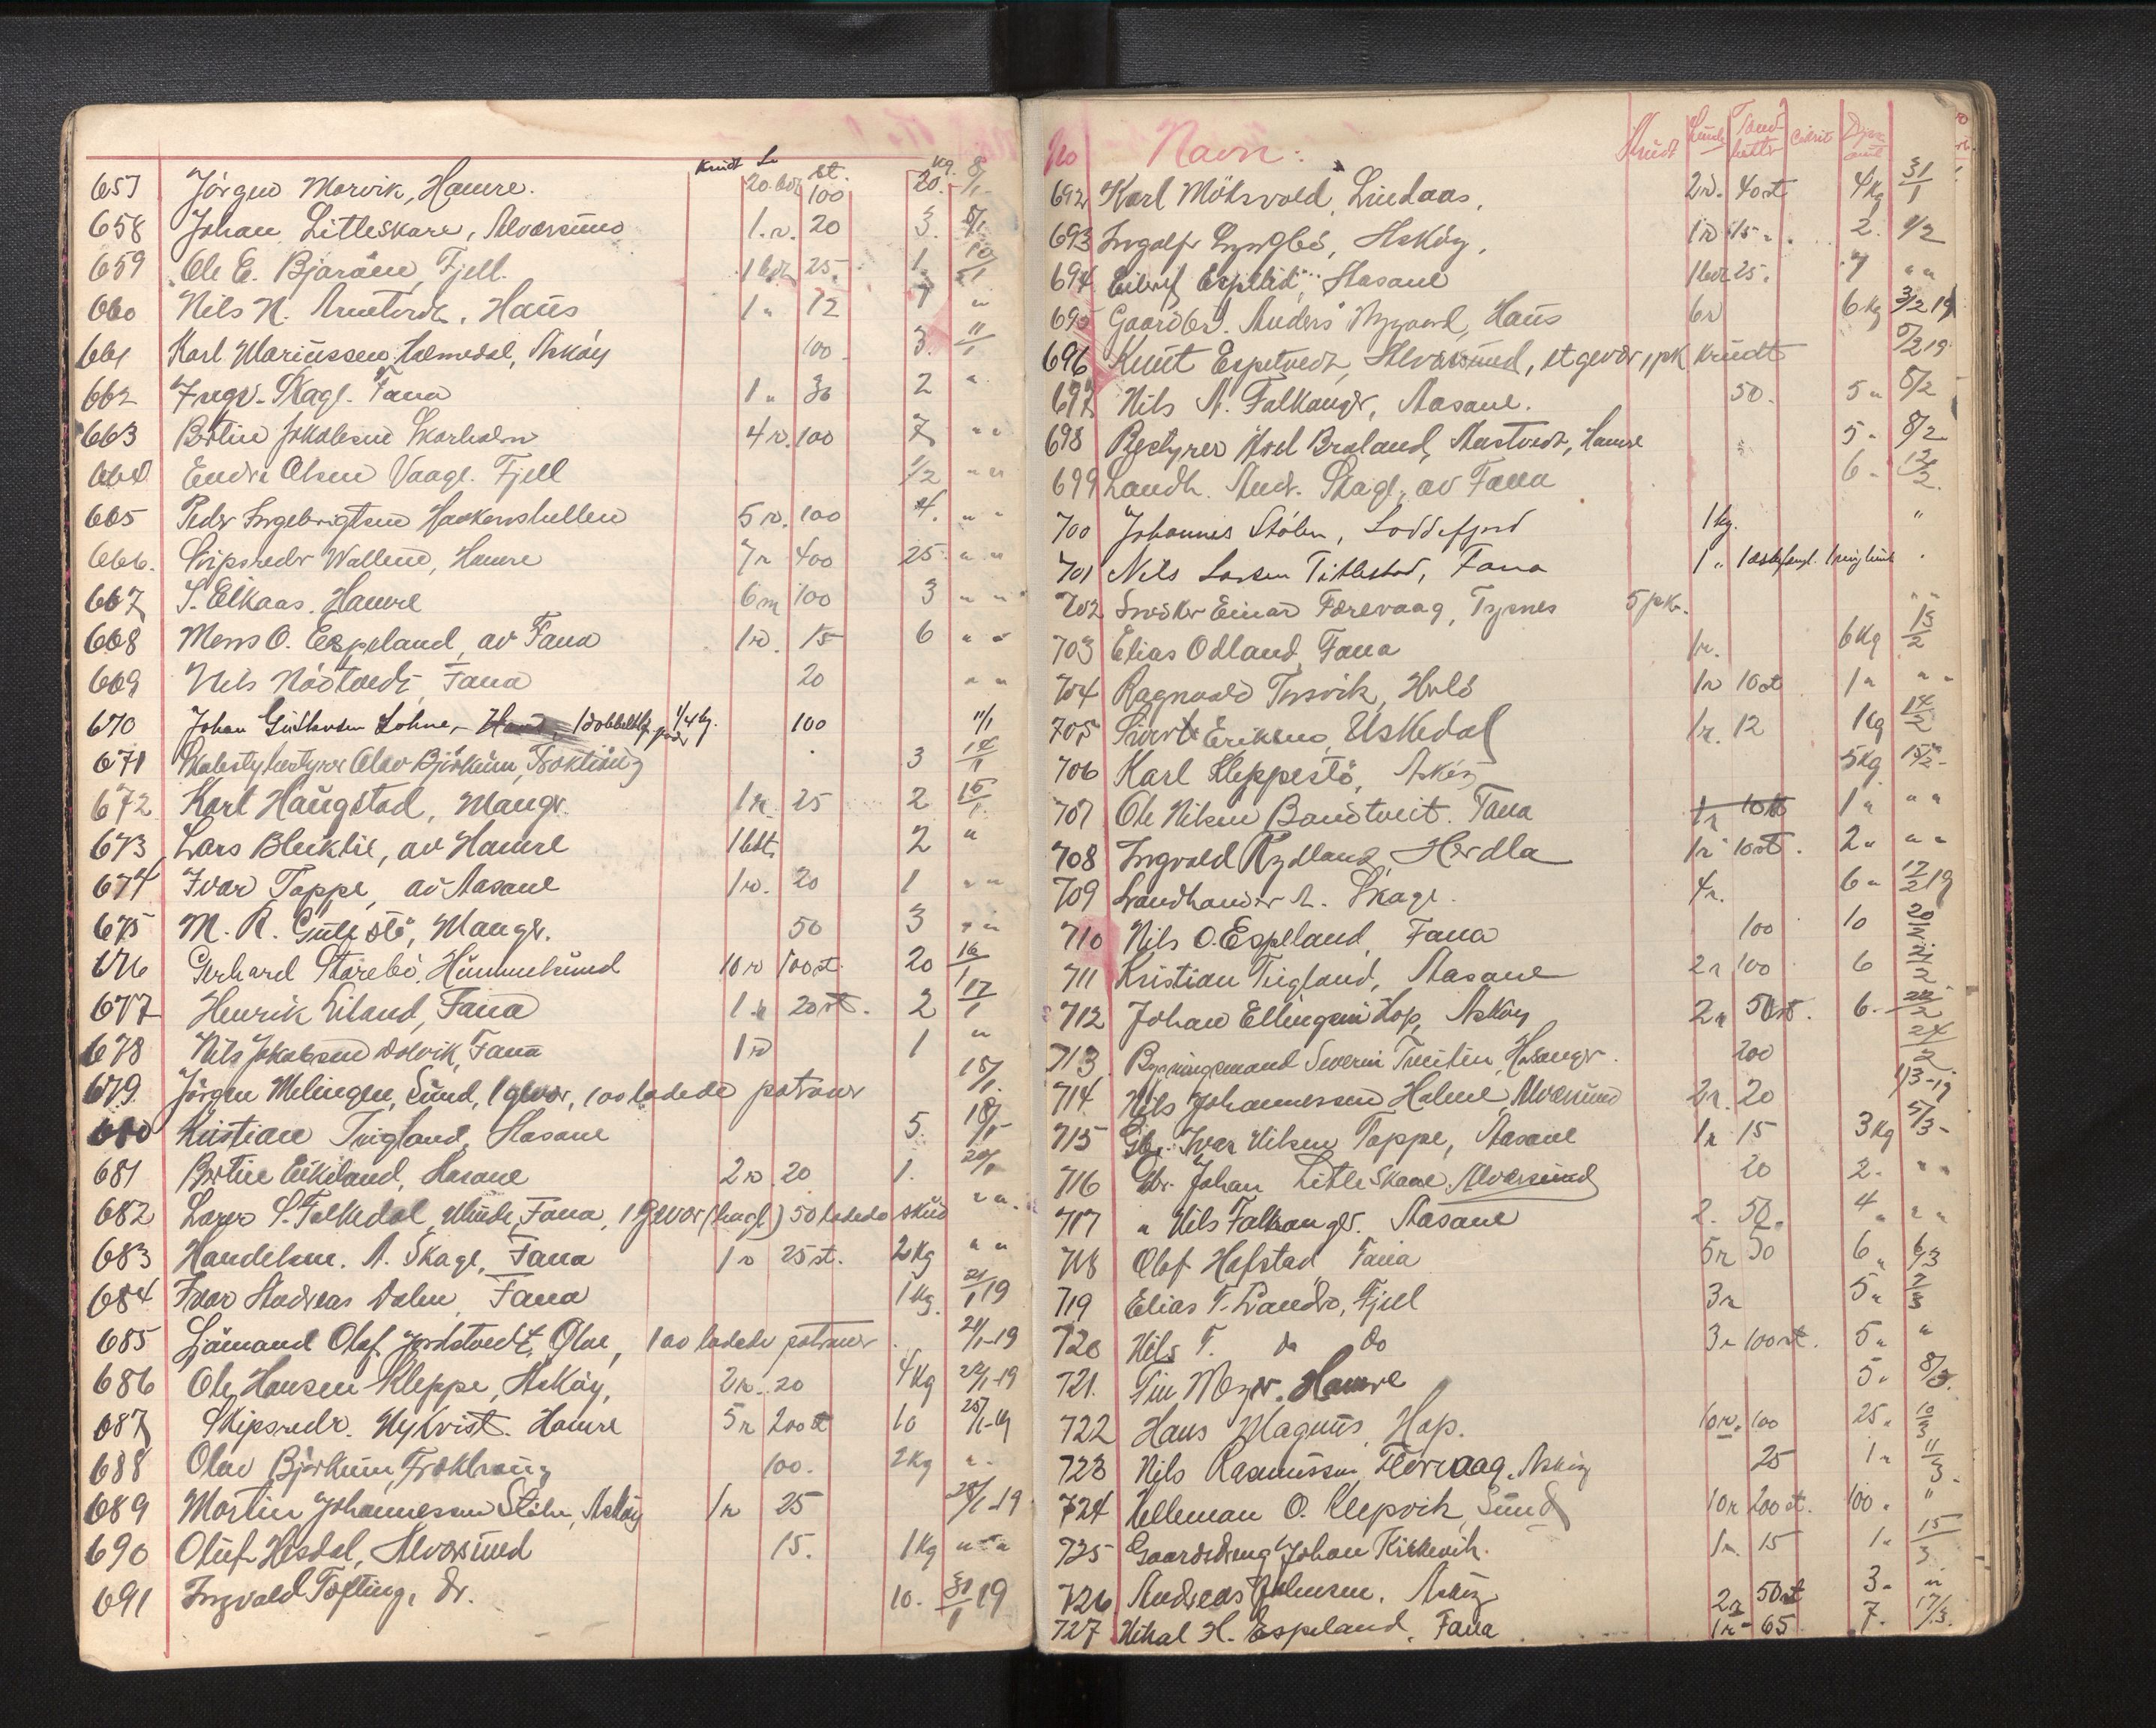 Krudt Lu st. kg.
657 Jörgen Morvik, Hamre. 20 bdt 100 20. 8/1
658 Johan Litleskare, Alversund 1 r. 20 3. 8/1
659 Ole E. Bjoröen, Fjell. 1 bdt 25. 1. 10/1
660 Nils N. Haus 1 " 12 1 "
661 Karl Mariussen Halmedal, Asköy 100 3. 11/1
662 Ingv. Skage. Fana 1 " 30 2 "
663 Bertin Jokobsen Skarholm 4 r. 100 7 " "
664 Endre Olsen Vaage. Fjell 1/2 " "
665 Peder Ingebrigtsen Haakonshellen 5 r. 100 4. " "
666. Skipsreder Wallem, Hamre 7 r 400 25. " "
667 S. Eikaas. Hamre 6 m 100 3 " "
668 Mons O. Espeland, av Fana 1 r. 15 6 " "
669 Nils Nöstvedt, Fana 20 " "
670 Johan Gustavsen Lohne, 1 dobbeltl. 1/4 kg. 100 11/1
671 Olav Björkum, Froktöing 3 14/1
672 Karl Haugstad, Manger. 1 r. 25 2 15/1
673 Lars Bleiklie, av Hamre 1 bdt. 2 "
674 Ivar Toppe, av Aasane 1 r. 20 1 " "
675 M. R. Gullstö, Manger. 50 3 " "
676 Gerhard Storebö, Hummelsund 10 r 100 st. 20 16/1
677 Henrik Liland, Fana 1 r 20 st. 2 17/1
678 Nils Jakobsen Dolvik, Fana 1 r 1 "
679 Jörgen Melingen, Sund, 1 gevær, 100 ladede patroner 18/1.
680 Kristian Tuigland, Aasane 5. 18/1
681 Bertin Eikeland, Aasane 2 r. 20 1. 20/1
682 Lærer S. Falkedal, Fana, 1 Gevær (hagl) 50 ladede skud " "
683 Handelsm. A. Skage, Fana 1 r 25 st. 2 kg " "
684 Ivar Andreas Dalen, Fana 1 kg. 21/1 19
685 Sjömand Olaf Jordstvedt, Olve, 100 ladede patroner 21/1-19
686 Ole Hansen Kleppe, Asköy, 2 r. 20 4 kg 22/1-19
687 Skipsredr. Nykvist. Hamre 5 r 200 st 10 25/1-19
688 Olav Björkum, 100. 2 kg " "
689 Martin Johannessen Stölen, Asköy 1 r 25 28/1-19
690 Oluf Hisdal, Alversund 15. 1 kg " "
691 Ingvald Tofting, Dr. 10. 31/1 19
No Navn: Krudt Lunte Tænd hætter Dyna mit
692 Karl Mökvold, Lindaas, 2 r. 40 st 4 kg 31/1
693 Ingolf Lyngbö, Asköy, 1 r 15 " 2. 1/2
694 Eiluf Espelid, Aasane 1 bdt 25. 7 " "
695 Gaardbr. Anders Nygaard, Haus 6 r 6 kg 3/2 19
696 Knut Espetvedt, Alversund, et gevær, 1 pk krudt 5/2 19
697 Nils A. Falkanger, Aasane. 50. 5 " 5/2
698 Bestyrer Axel Braland, Austvedt, Hamre 5 " 8/2
699 Landh. Andr. Skage, av Fana 6 " 12/2.
700 Johannes Stölen, Loddefjord 1 kg. "
701 Nils Larsen Titlestad, Fana 1 " 1 ring lunte
702 Snedker Einar Forevaag, Tysnes 5 pk. " "
703 Elias Odland, Fana 1 r. 6 kg 13/2
704 Ragnvald Torsvik, Herlö 1 r 10 st 1 " " "
705 Sivert Eriksen, Uskedal 1 r. 12 1 kg 14/2
706 Karl Kleppestö, Asköy 5 kg 15/2
707 Ole Nilsen Bondtveit. Fana 1 r 10 st 1 " " "
708 Ingvald Rydland, Herdla 1 r 10 st. 2 " " "
709 Landhandler A. Skage. 4 r. 6 " 17/2 19
710 Nils O. Espeland, Fana 100 10 20/2
711 Kristian Tuigland, Aasane 2 r 100 6 21/2
712 Johan Ellingsen Hop, Asköy 2 r 50 st. 6. 22/2
713. Bygningsmand Severin Tveiten, Hosanger. 200 24/2
714 Nils Johannessen Holme, Alversund 2 r. 20 1/3-19
715 Gbr. Ivar Nilsen Toppe, Aasane 1 r 15 3 kg 5/3-
716 Gbr. Johan Litleskare, Alversund 20 2. " "
717 " Nils Falkanger. Aasane 2. 50. 4 " " "
718 Olof Hafstad Fana 5 r 50 6 " 6/3
719 Elias T. Landro, Fjell 3 r 5 " 7/3
720 Nils T. do do 3 r 100 st. 5 " "
721. Tin Meyer. Hamre 5 " 8/3.
722 Hans Magnus, Hop. 10 r. 100 25 " 10/3
723 Nils Rasmussen, Florvaag, Asköy 25 1 " 11/3.
724 Velleman O. Klepsvik, Sund 10 r 200 st. 100 " "
725 Gaardsdreng Johan Kirkevik. 1 r. 15 1 " 15/3
726 Andreas Johnsen. Asköy 2 r 50 st 3 " "
727 Mikal H. Espeland, Fana 1 r 65 7. 17/3.